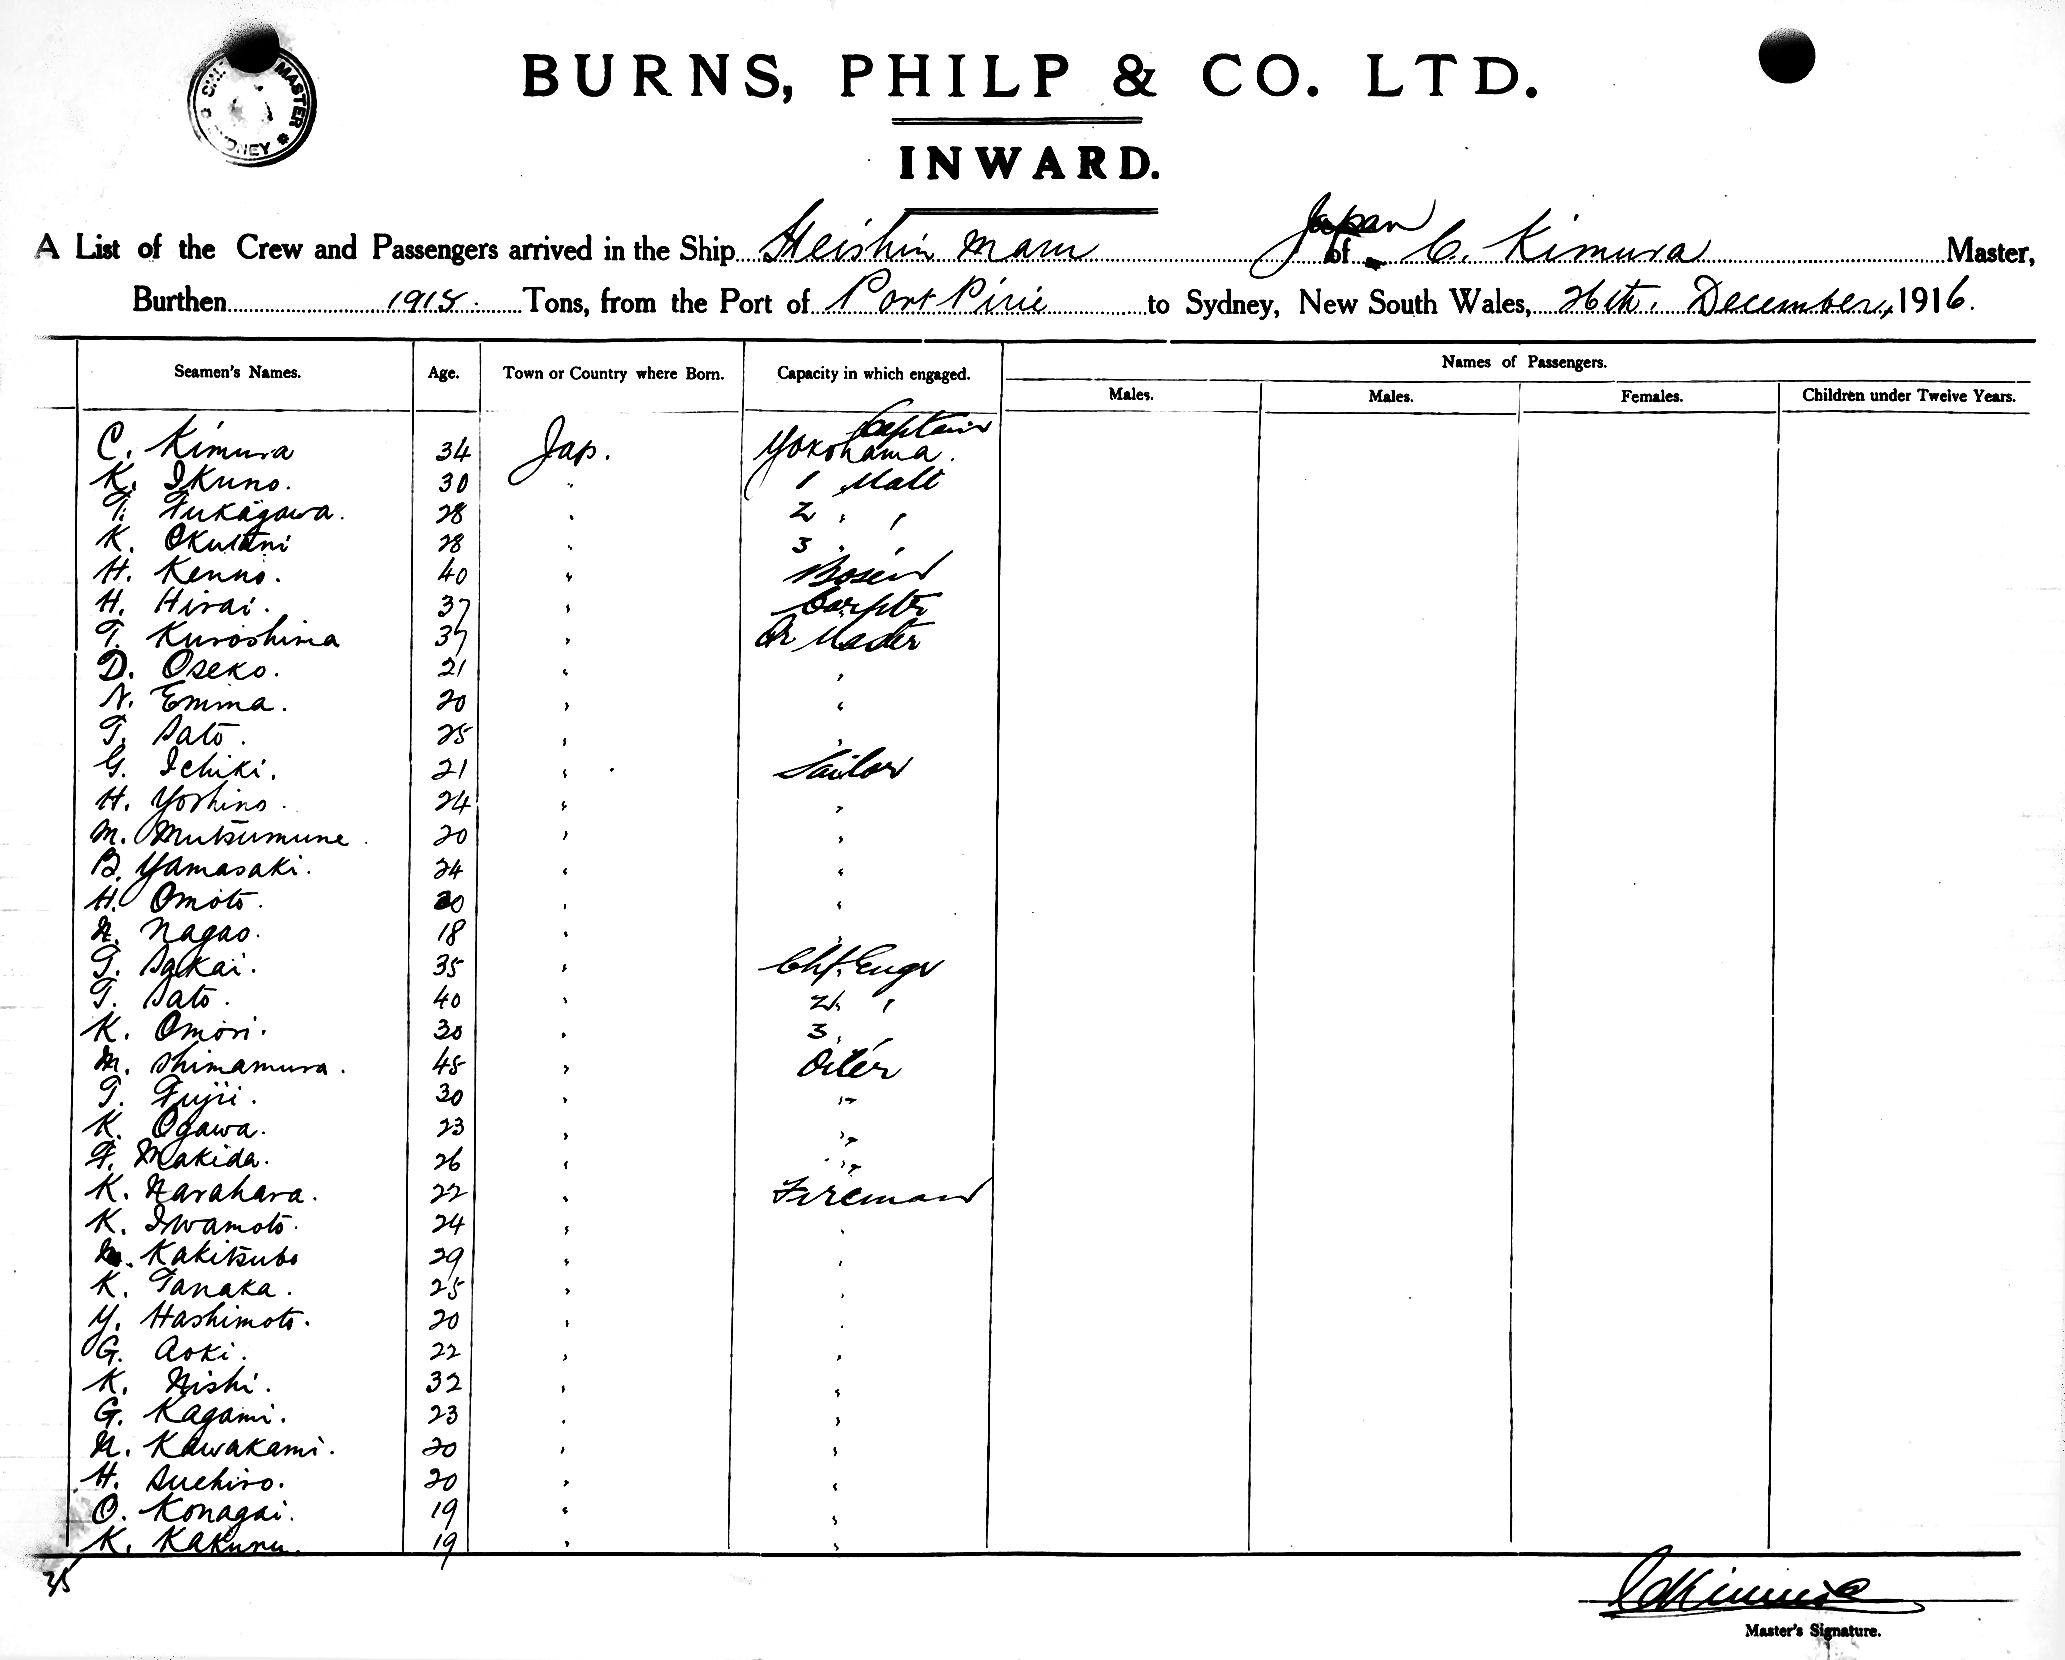 BURNS, PHILP & CO. LTD.
INWARD.
MASTER
Japan
A List of the Crew and Passengers arrived in the Ship Heishin Maru of C. Kimura Master,
Burthen 1915 Tons, from the Port of Port Pirie to Sydney, New South Wales, 26th. December, 1916.
Seamen's Names. Age. Town or Country where Born. Capacity in which engaged. Names of Passengers.
Males. Males. Females. Children under Twelve Years.
Captain
C. Kimura 34 Jap. Yokohama.
K. Ikuno. 30 " 1 Mate
T. Fukagawa. 28 " 2 " "
K. Okutani 28 " 3 " "
H. Kenno. 40 " Bosen
H. Hirai. 37 " Carptr
T. Kuroshima 37 " Qr Master
D. Oseko. 21 " "
N. Emma. 20 " "
T. Sato. 25 " "
G. Ichiki. 21 " Sailor
H. Yoshino. 24 " "
M. Mutsumune. 20 " "
B. Yamasaki. 24 " "
H. Omoto. 20 " "
N. Nagao. 18 " "
T. Sakai. 35 " Chf. Engr
T. Sato. 40 " 2 "
K. Omori. 30 " 3 "
M. Shimamura. 45 " Oiler
T. Fujii. 30 " "
K. Ogawa. 23 " "
F. Makida. 26 " "
K. Narahara. 22 " Fireman
K. Iwamoto. 24 " "
Kakitsubo 29 " "
K. Tanaka. 25 " "
Y. Hashimoto. 20 " "
G. Aoki. 22 " "
K. Nishi. 32 " "
G. Kagami. 23 " "
N. Kawakami. 20 " "
H. Suehiro. 20 " "
O. Konagai. 19 " "
K. Kakunu. 19 " "
35
C Kimura
Master's Signature.